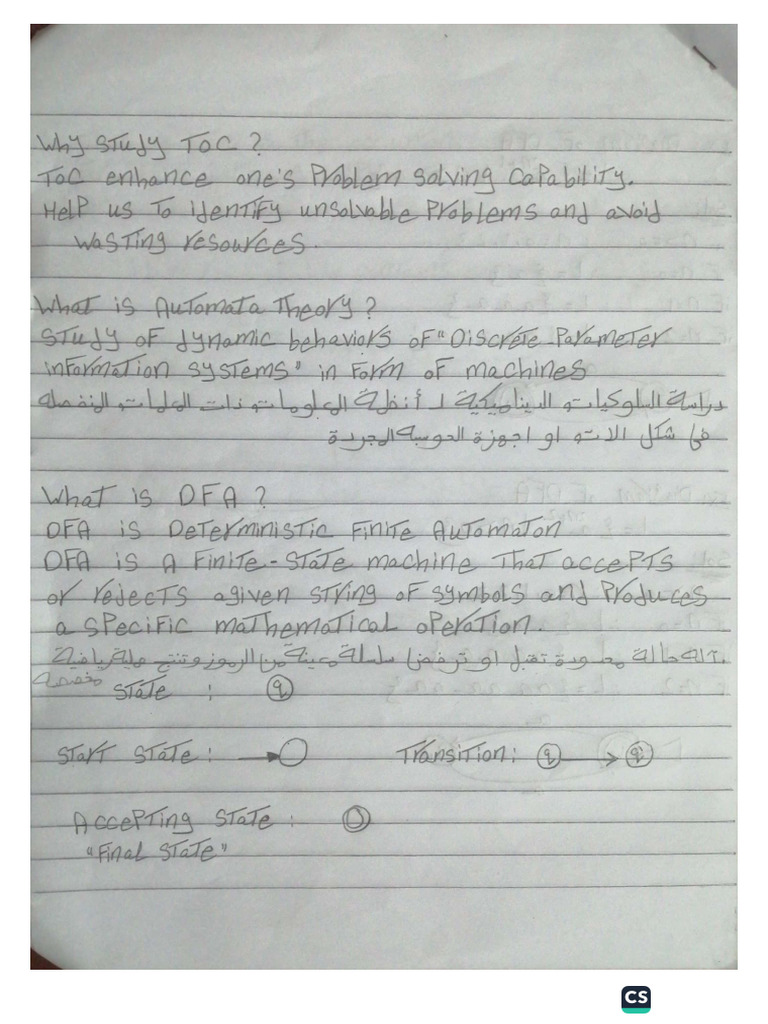 Why study TOC ?
TOC enhance one's Problem solving capability.
Help us to identify unsolvable Problems and avoid
wasting resources.
What is Automata Theory ?
study of dynamic behaviors of "Discrete Parameter
information systems" in form of machines
دراسة السلوكيات الديناميكية لـ أنظمة المعلومات ذات المعلمات المنفصله
في شكل الات او اجهزة الحوسبه المجردة
What is DFA ?
DFA is Deterministic Finite Automaton
DFA is A Finite-state machine that accepts
or rejects agiven string of symbols and Produces
a specific mathematical operation.
آلة حالة محدودة تقبل او ترفض سلسلة معينة من الرموز وتنتج عملية رياضية
مخصصة
state : q
start state : Transition : q q
Accepting state :
"Final state"
CS